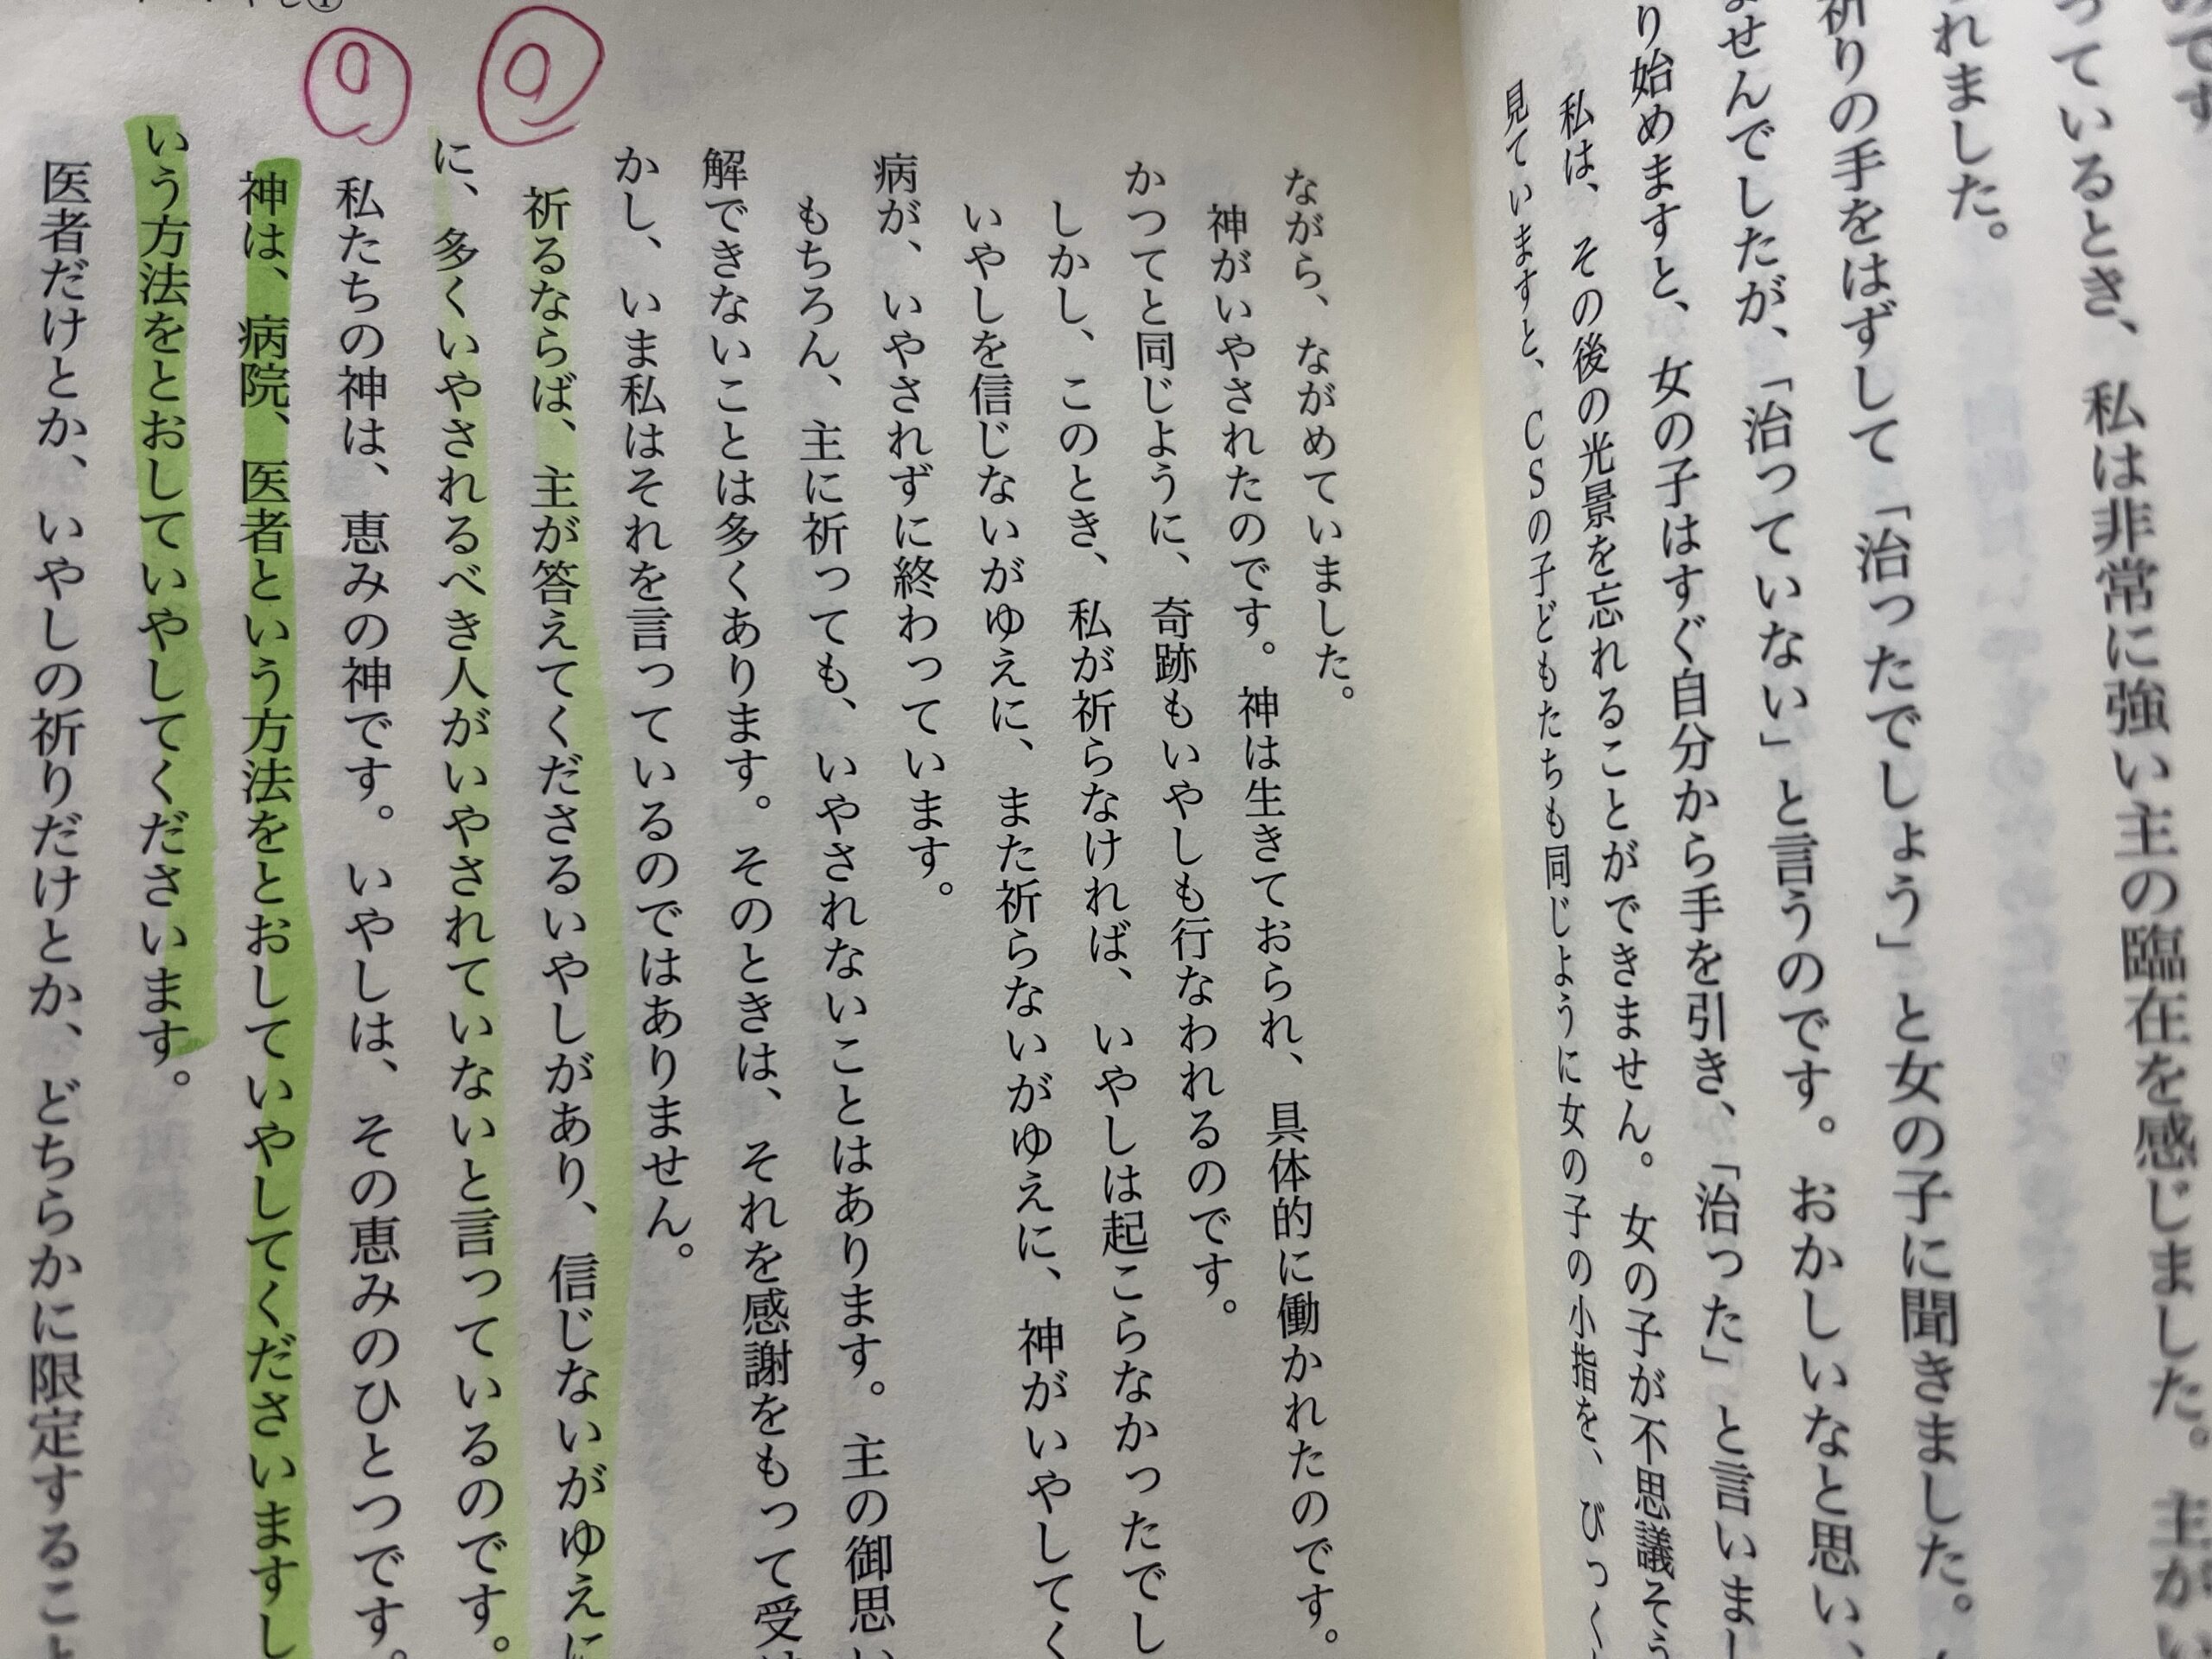 のです
っているとき、私は非常に強い主の臨在を感じました。主がい
れました。
祈りの手をはずして「治ったでしょう」と女の子に聞きました。
ませんでしたが、「治っていない」と言うのです。おかしいなと思い、
り始めますと、女の子はすぐ自分から手を引き、「治った」と言いまし
私は、その後の光景を忘れることができません。女の子が不思議そう
見ていますと、CSの子どもたちも同じように女の子の小指を、びっく
ながら、ながめていました。
神がいやされたのです。神は生きておられ、具体的に働かれたのです。
かつてと同じように、奇跡もいやしも行なわれるのです。
しかし、このとき、私が祈らなければ、いやしは起こらなかったでし
いやしを信じないがゆえに、また祈らないがゆえに、神がいやしてく
病が、いやされずに終わっています。
もちろん、主に祈っても、いやされないことはあります。主の御思い
解できないことは多くあります。そのときは、それを感謝をもって受け
かし、いま私はそれを言っているのではありません。
祈るならば、主が答えてくださるいやしがあり、信じないがゆえに
に、多くいやされるべき人がいやされていないと言っているのです。
私たちの神は、恵みの神です。いやしは、その恵みのひとつです。
神は、病院、医者という方法をとおしていやしてくださいますし
いう方法をとおしていやしてくださいます。
医者だけとか、いやしの祈りだけとか、どちらかに限定すること